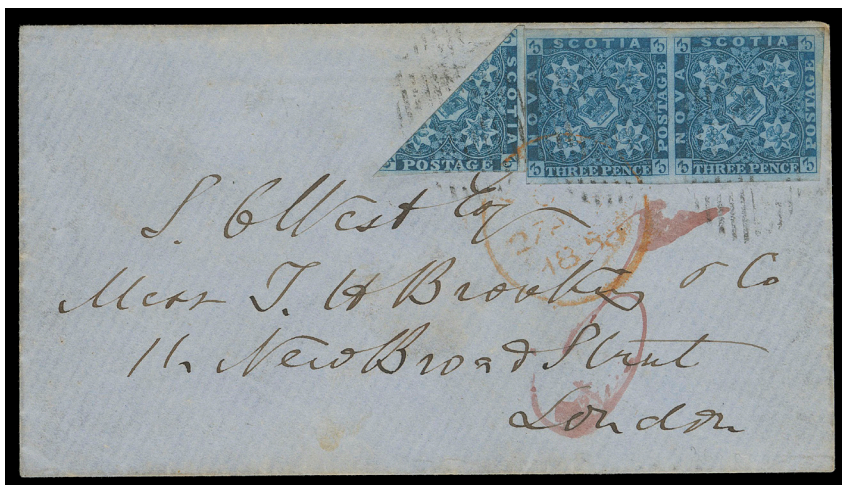 SCOTIA
POSTAGE
SCOTIA
NOVA
POSTAGE
THREE PENCE
SCOTIA
NOVA
POSTAGE
THREE PENCE
S. C West Esq
Messr T. H Brooking & Co
11 New Broad Street
London
27
185